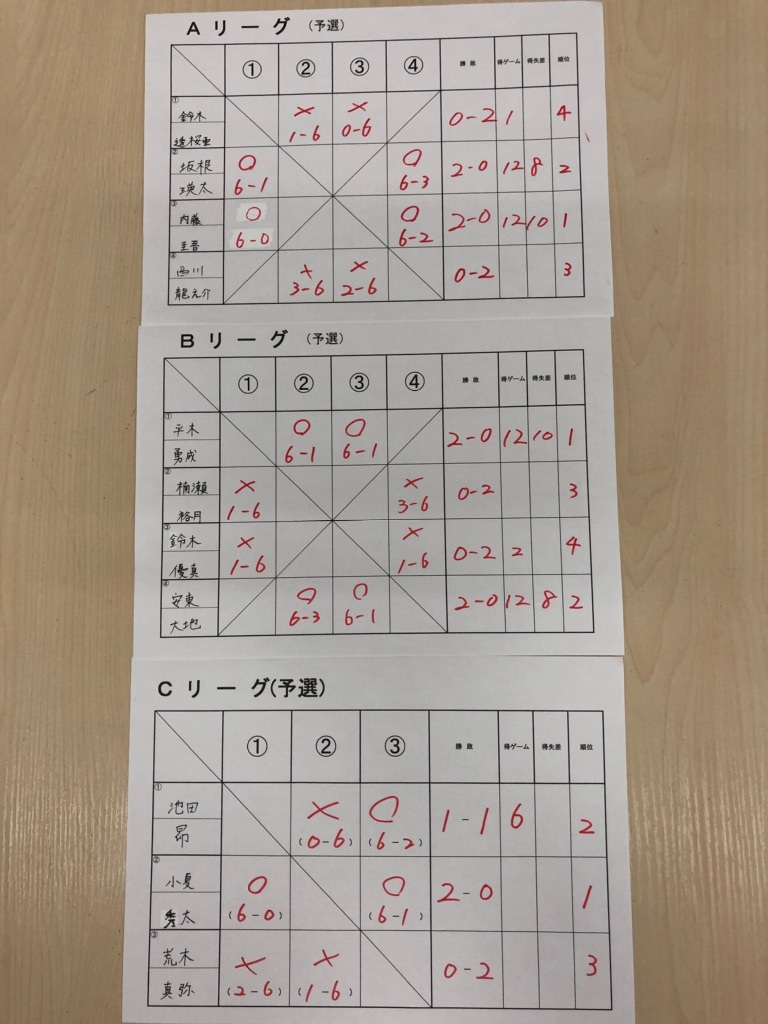 A リ ー グ (予選)
① ② ③ ④ 勝 敗 得ゲーム 得失差 順位
① 鈴木 × × 0-2 1 4
1-6 0-6
② 坂根 ○ ○ 2-0 12 8 2
瑛太 6-1 6-3
③ 内藤 ○ ○ 2-0 12 10 1
圭吾 6-0 6-2
④ 西川 × × 0-2 3
龍之介 3-6 2-6
B リ ー グ (予選)
① ② ③ ④ 勝 敗 得ゲーム 得失差 順位
① 平木 ○ ○ 2-0 12 10 1
勇成 6-1 6-1
② 楠瀬 × × 0-2 3
1-6 3-6
③ 鈴木 × × 0-2 2 4
優真 1-6 1-6
④ 安東 ○ ○ 2-0 12 8 2
大地 6-3 6-1
C リ ー グ(予選)
① ② ③ 勝 敗 得ゲーム 得失差 順位
① 池田 × ○ 1-1 6 2
昂 (0-6) (6-2)
② 小夏 ○ ○ 2-0 1
秀太 (6-0) (6-1)
③ 荒木 × × 0-2 3
真弥 (2-6) (1-6)